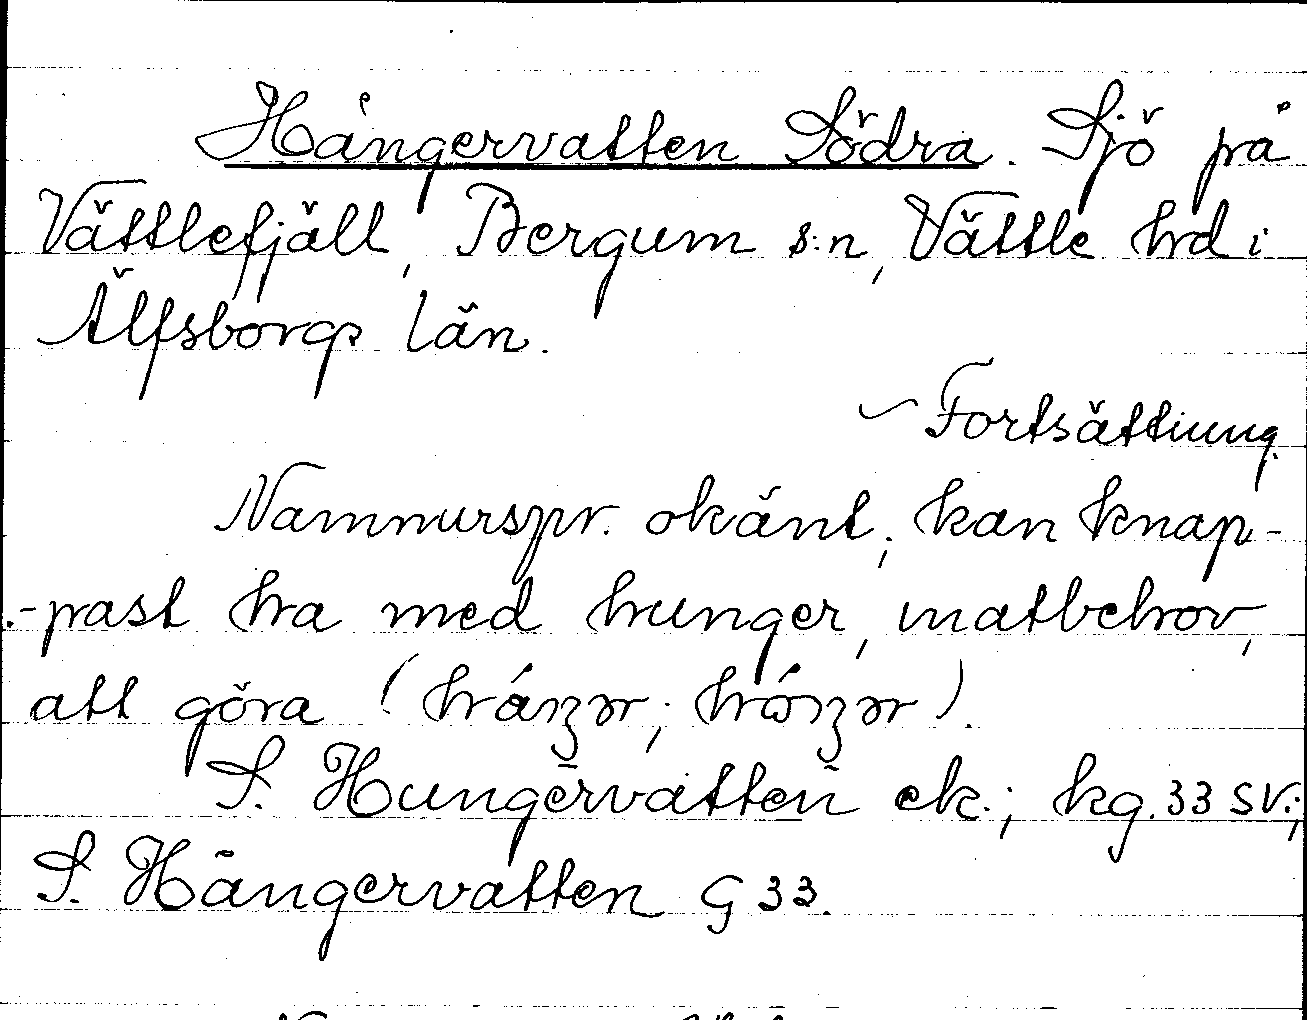 Hångervatten Södra. Sjö på
Vättlefjäll, Bergum s:n, Vättle hd i
Älfsborgs län.
Fortsättning.
Namnurspr. okänt; kan knap-
-past ha med hunger, matbehov,
att göra (
S. Hungervatten ek.; kg. 33 SV.;
S. Hängervatten G 33.